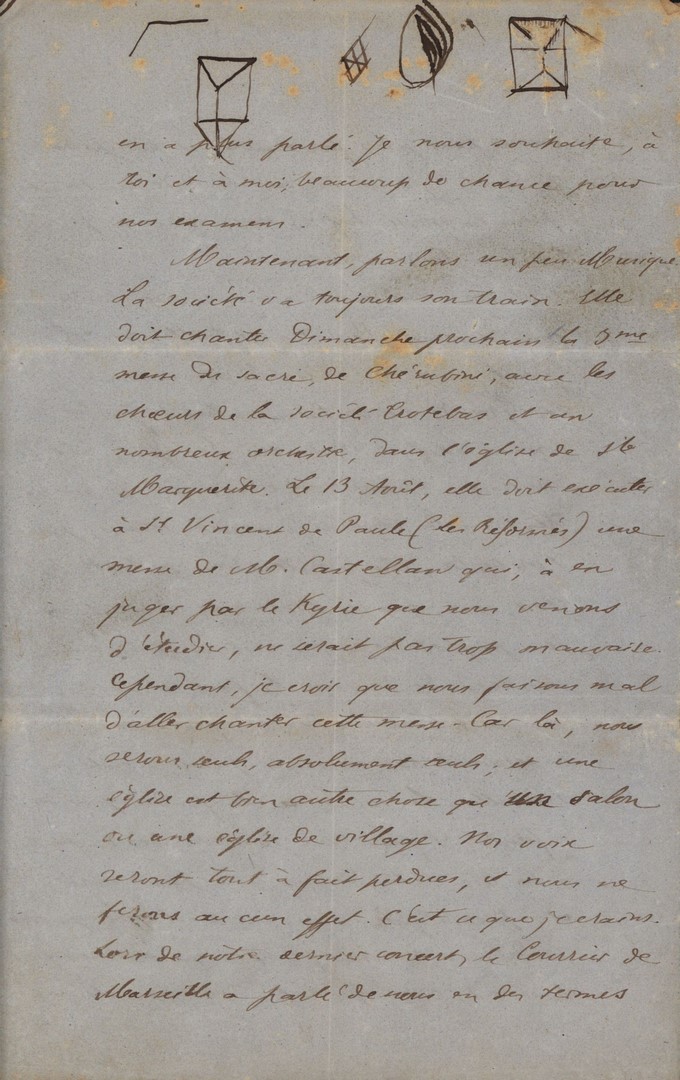 en a plus parlé. Je nous souhaite, à
toi et à moi, beaucoup de chance pour
nos examens.
Maintenant, parlons un peu Musique
La société va toujours son train. Elle
doit chanter Dimanche prochain la 3me
messe du sacre, de Chérubini, avec les
chœurs de la société Trotebas et un
nombreux orchestre, dans l'église de Ste
Marguerite. Le 13 Août, elle doit exécuter
à St Vincent de Paule (Les Réformés) une
messe de M. Castellan qui, à en
juger par le Kyrie que nous venons
d'étudier, ne serait pas trop mauvaise.
Cependant, je crois que nous faisons mal
d'aller chanter cette messe. Car là, nous
serons seuls, absolument seuls; et une
église est bien autre chose qu'un salon
ou une église de village. Nos voix
seront tout à fait perdues, et nous ne
ferons aucun effet. C'est ce que je crains.
Lors de notre dernier concert, le Courrier de
Marseille a parlé de nous en des termes